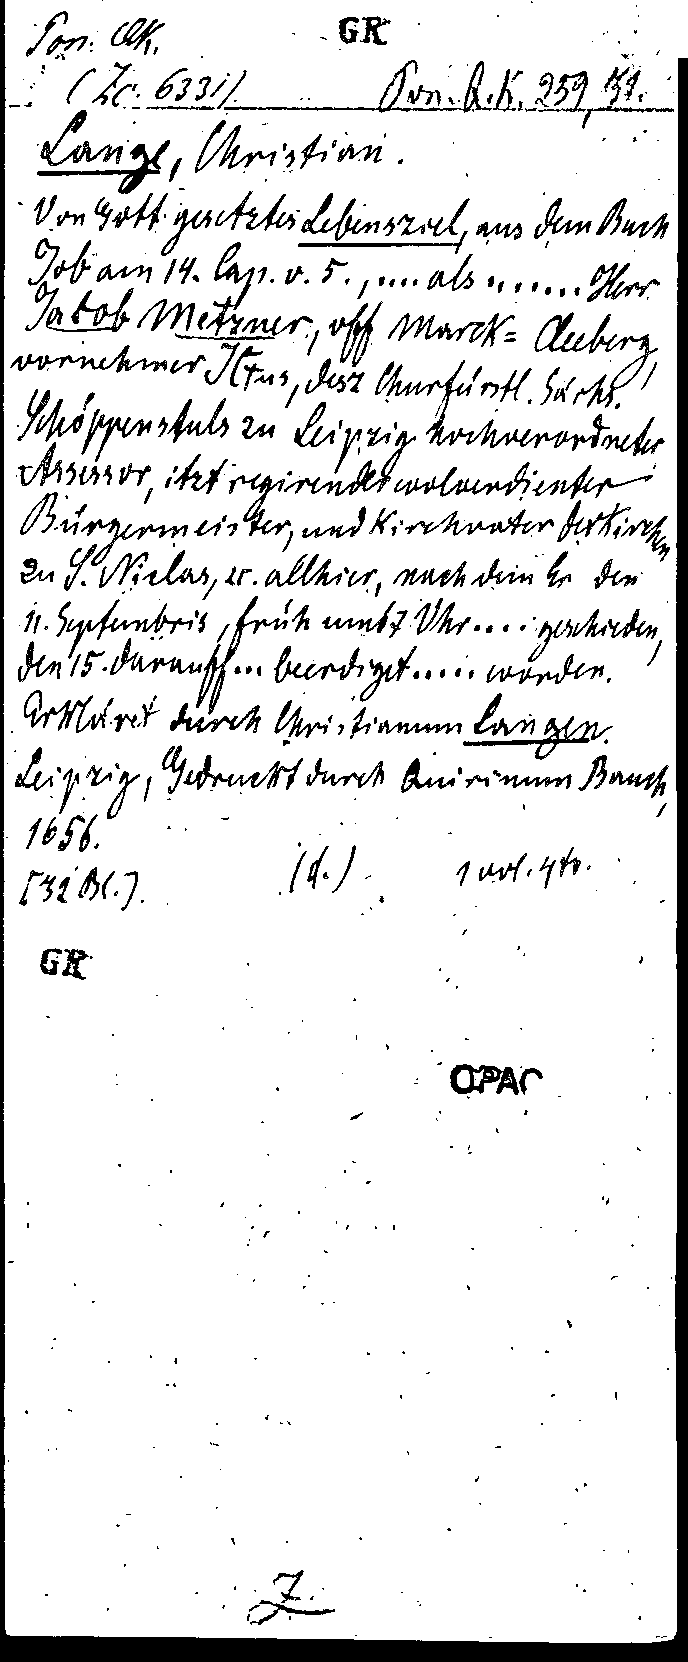 Pon. QK. GR
(Zc. 6331) Pon. Q.K. 259, 31.
Lange, Christian.
Von Gott gesetztes Lebensziel, aus dem Buch
Job am 14. Cap. v. 5., .... als ...... Herr
Jakob Metzner, off Marck= Cleeberg,
vornehmer JCtus, desz Churfürstl. Sächs.
Schöppenstuls zu Leipzig hochverordneter
Assessor, itzt regirender wolverdienter
Bürgermeister, und Kirchvater der Kirchen
zu S. Niclas, ꝛc. allhier, nach dem Er den
11. Septembris, früh umb 7 Uhr .... geschieden,
den 15. darauff ... beerdiget ..... worden.
Erkläret durch Christianum Langen.
Leipzig, Gedruckt durch Quirinum Bauch,
1656.
[32 Bl.]. (d.) 1 vol. 4to.
GR
OPAC
Z